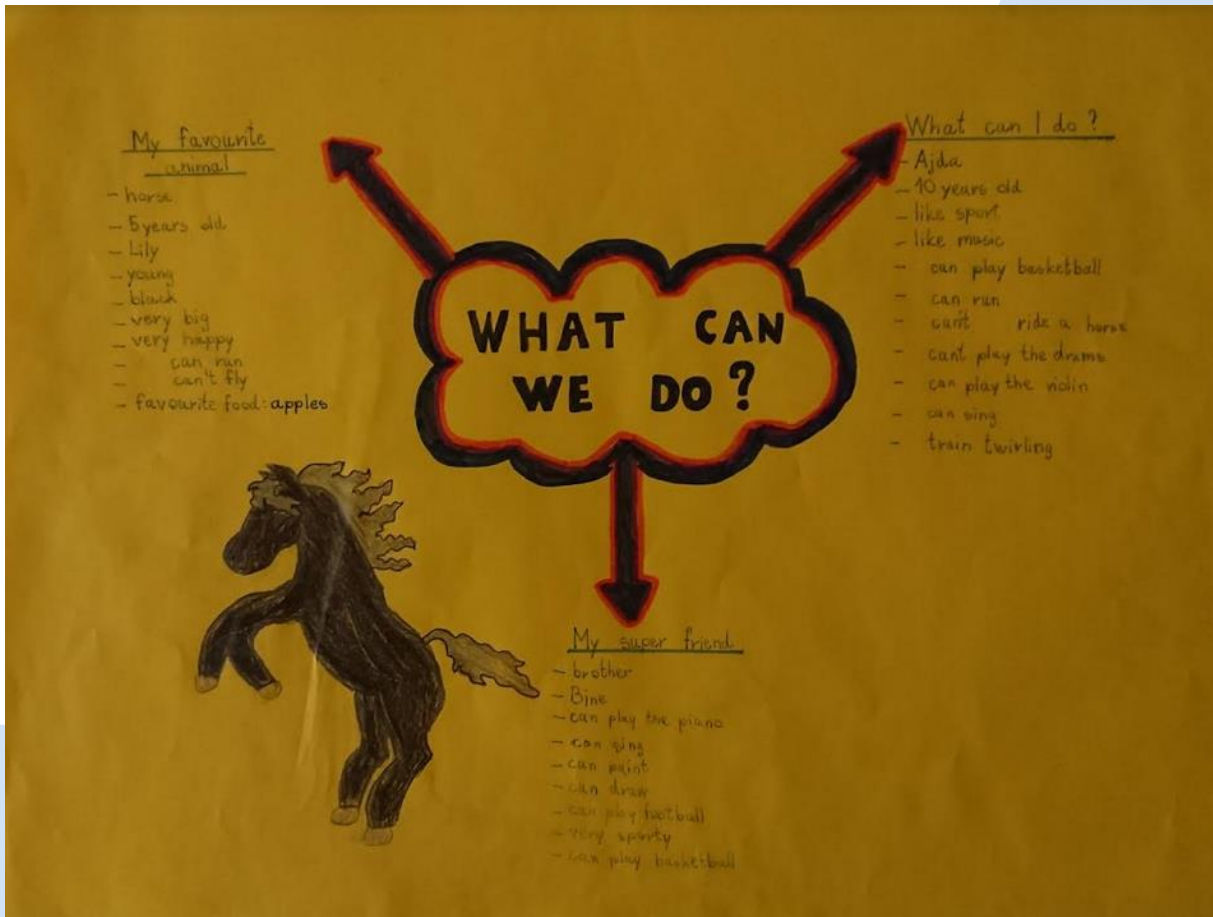 WHAT CAN
WE DO?
My favourite
animal
- horse
- 5 years old
- Lily
- young
- black
- very big
- very happy
- can run
- can't fly
- favourite food: apples
What can I do?
- Ajda
- 10 years old
- like sport
- like music
- can play basketball
- can run
- can't ride a horse
- can't play the drums
- can play the violin
- can sing
- train twirling
My super friend
- brother
- Bine
- can play the piano
- can sing
- can paint
- can draw
- can play football
- very sporty
- can play basketball